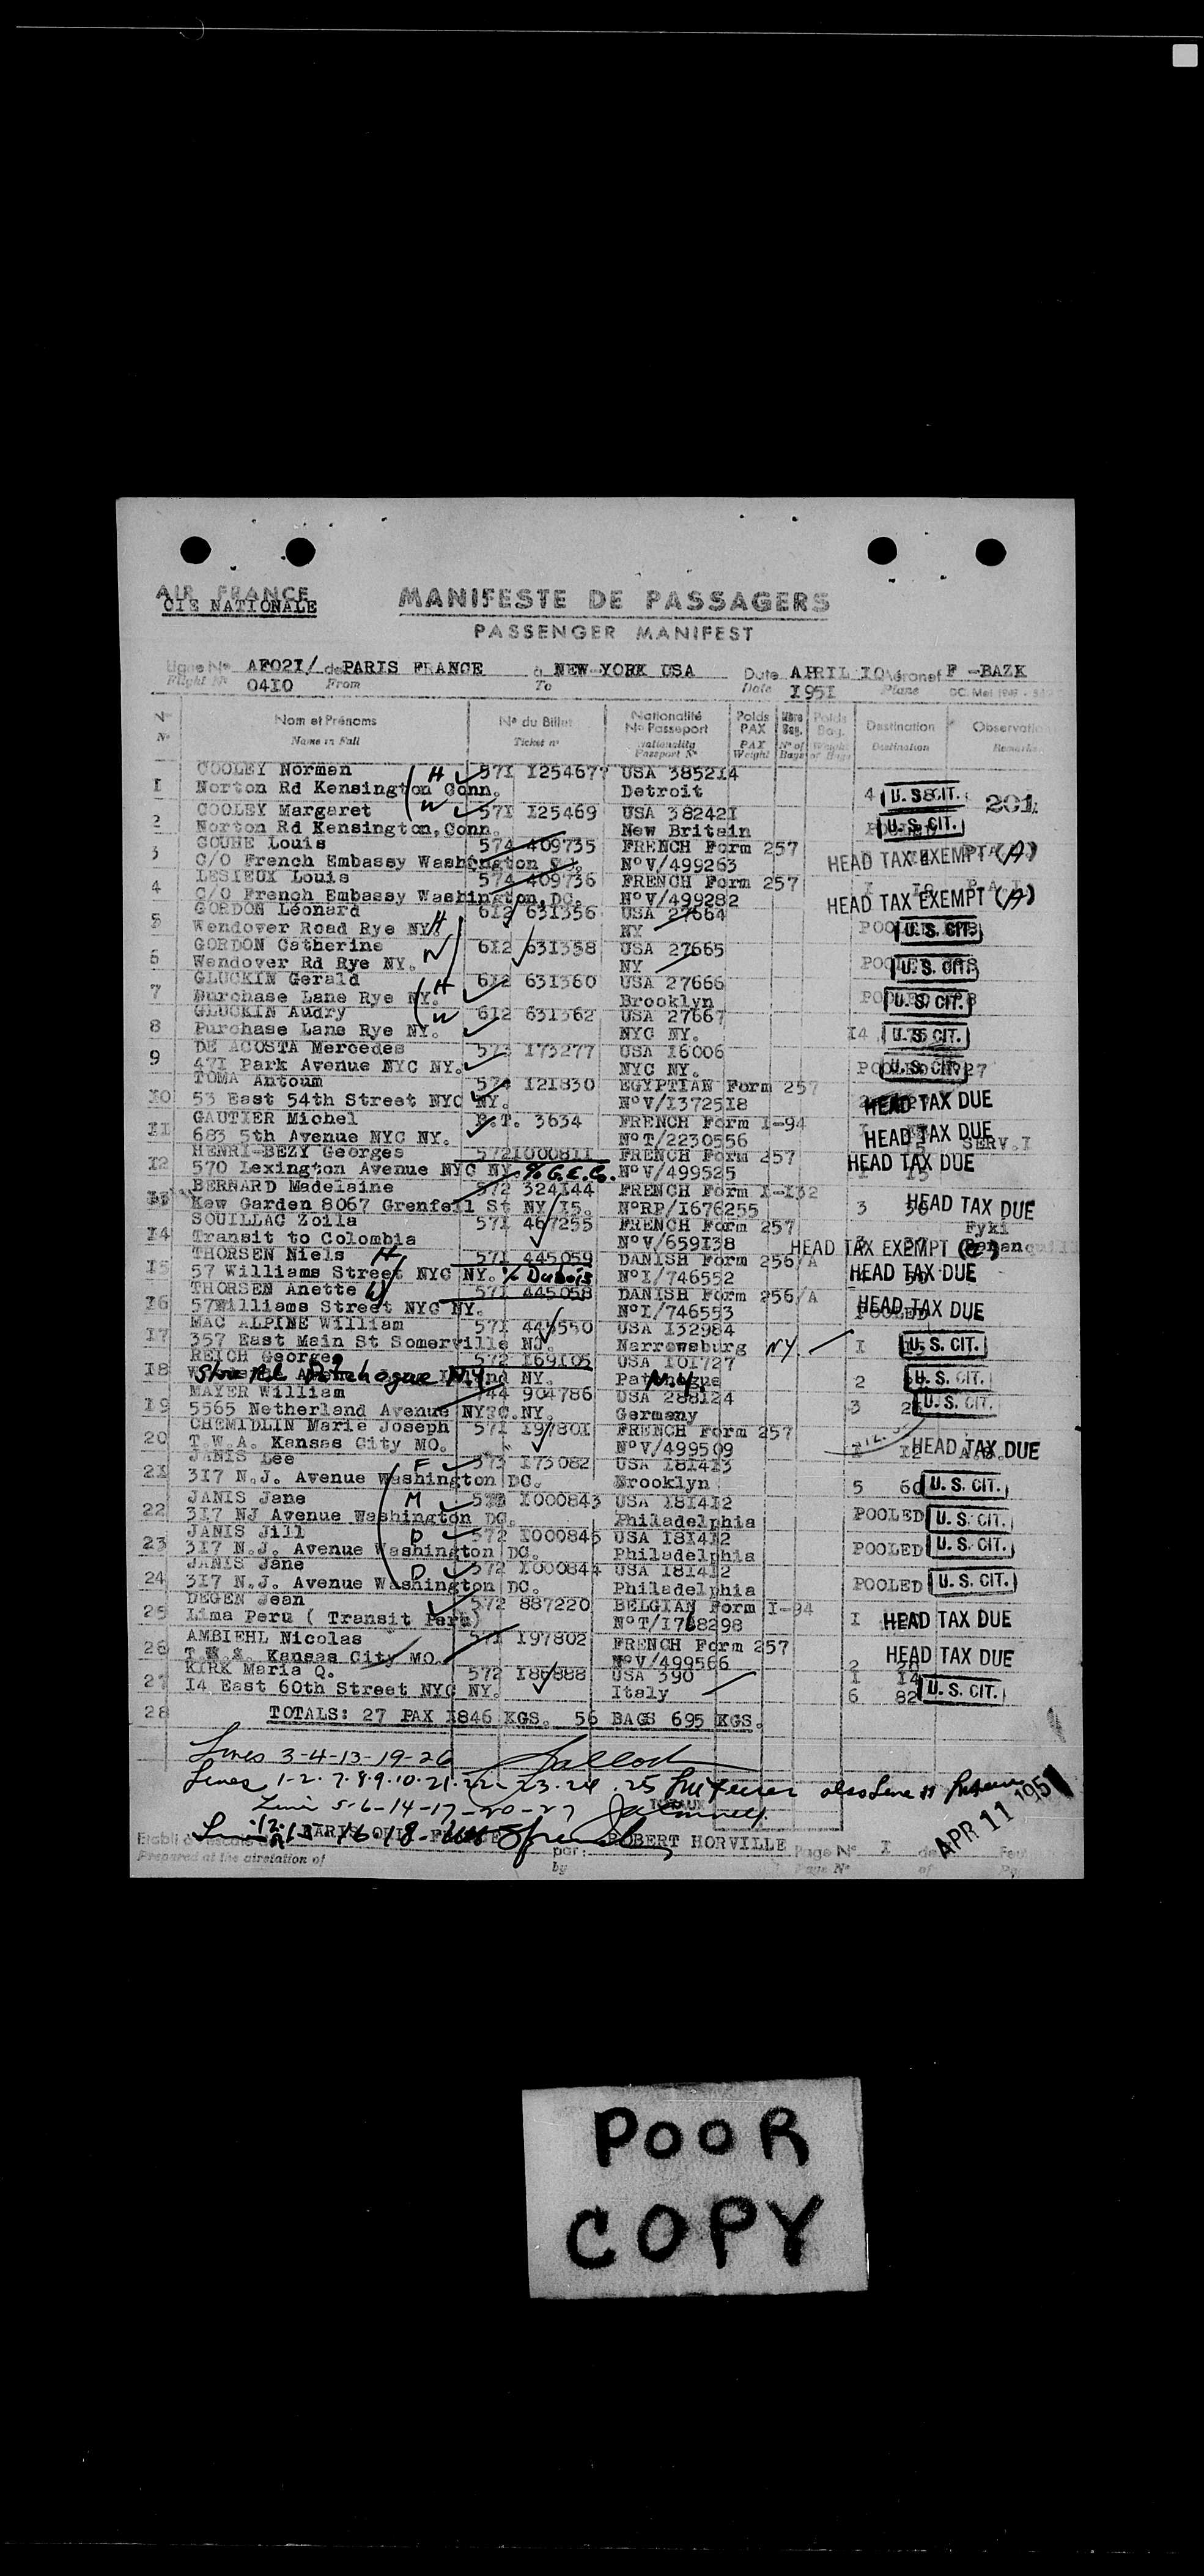 AIR FRANCE
CIE NATIONALE
MANIFESTE DE PASSAGERS
PASSENGER MANIFEST
Ligne No AF021/ de PARIS FRANCE à NEW-YORK USA Date APRIL IO Aéronef F -BAZK
Flight No 04I0 From To Date I95I Plane
No Nom et Prénoms No du Billet Nationalité No Passeport Poids PAX Nbre Bag. Poids Bag. Destination Observation
No Name in Full Ticket no Nationality Passport No PAX Weight No of Bags Weight of Bags Destination Remarks
COOLEY Norman H 57I I254677 USA 3852I4
I Norton Rd Kensington Conn. Detroit 4 U.S. CIT. 201
COOLEY Margaret W 57I I25469 USA 38242I
2 Norton Rd Kensington, Conn. New Britain U.S. CIT.
GOUHE Louis 574 409735 FRENCH Form 257
3 C/O French Embassy Washington NoV/499263 HEAD TAX EXEMPT (A)
LESIEUX Louis 574 409736 FRENCH Form 257
4 C/O French Embassy Washington, DC. NoV/499282 HEAD TAX EXEMPT (A)
GORDON Léonard 6I2 63I356 USA 27664
5 Wendover Road Rye NY. H NY U.S. CIT.
GORDON Catherine 6I2 63I358 USA 27665
6 Wendover Rd Rye NY. W NY U.S. CIT.
GLUCKIN Gerald H 6I2 63I360 USA 27666
7 Purchase Lane Rye NY. Brooklyn U.S. CIT.
GLUCKIN Audry W 6I2 63I362 USA 27667
8 Purchase Lane Rye NY. NYC NY. I4 U.S. CIT.
DE ACOSTA Mercedes 573 I73277 USA I6006
9 47I Park Avenue NYC NY. NYC NY. U.S. CIT. 27
TOMA Antoum 574 I2I830 EGYPTIAN Form 257
IO 53 East 54th Street NYC NY. NoV/I3725I8 HEAD TAX DUE
GAUTIER Michel P.T. 3634 FRENCH Form I-94
II 683 5th Avenue NYC NY. NoT/2230556 HEAD TAX DUE SERV.I
HENRI-BEZY Georges 572I0008II FRENCH Form 257
I2 570 Lexington Avenue NYC NY. % G.E.C. NoV/499525 HEAD TAX DUE I5
BERNARD Madelaine 572 324I44 FRENCH Form I-I32
I3 Kew Garden 8067 Grenfell St NY I5. NoRP/I676255 3 HEAD TAX DUE
SOUILLAC Zoila 57I 467255 FRENCH Form 257 Fyki
I4 Transit to Colombia NoV/659I38 HEAD TAX EXEMPT
THORSEN Niels H 57I 445059 DANISH Form 256/A
I5 57 Williams Street NYC NY. % Dubois NoI/746552 HEAD TAX DUE
THORSEN Anette W 57I 445058 DANISH Form 256/A
I6 57Williams Street NYC NY. NoI/746553 POOLED HEAD TAX DUE
MAC ALPINE William 57I 445550 USA I32984
I7 357 East Main St Somerville NJ. Narrowsburg NY. I U.S. CIT.
REICH Georges 572 I69I05 USA I0I727
I8 Patchogue N.Y. NY. Patchogue N.Y. 2 U.S. CIT.
MAYER William 744 904786 USA 288I24
I9 5565 Netherland Avenue NYC.NY. Germany 3 U.S. CIT.
CHEMIDLIN Marie Joseph 57I I9780I FRENCH Form 257
20 T.W.A. Kansas City MO. NoV/499509 I I2 HEAD TAX DUE
JANIS Lee F 573 I73082 USA I8I4I3
2I 3I7 N.J. Avenue Washington DC. Brooklyn 5 60 U.S. CIT.
JANIS Jane M I000843 USA I8I4I2
22 3I7 NJ Avenue Washington DC. Philadelphia POOLED U.S. CIT.
JANIS Jill D 572 I000845 USA I8I4I2
23 3I7 N.J. Avenue Washington DC. Philadelphia POOLED U.S. CIT.
JANIS Jane D 572 I000844 USA I8I4I2
24 3I7 N.J. Avenue Washington DC. Philadelphia POOLED U.S. CIT.
DEGEN Jean 572 887220 BELGIAN Form I-94
25 Lima Peru ( Transit Peru) NoT/I768298 I HEAD TAX DUE
AMBIEHL Nicolas 57I I97802 FRENCH Form 257
26 T.W.A. Kansas City MO. NoV/499566 2 HEAD TAX DUE
KIRK Maria Q. 572 I86888 USA 390 I I4
27 I4 East 60th Street NYC NY. Italy 6 82 U.S. CIT.
28 TOTALS: 27 PAX I846 KGS. 56 BAGS 695 KGS.
Lines 3-4-13-19-26
Lines 1-2-7-8-9-10-21-22-23-24-25 also Line 11
Line 5-6-14-17-20-27
TOTAUX
ROBERT HORVILLE Page No I de
Prepared at the airstation of by Page No of
APR 11 1951
POOR
COPY